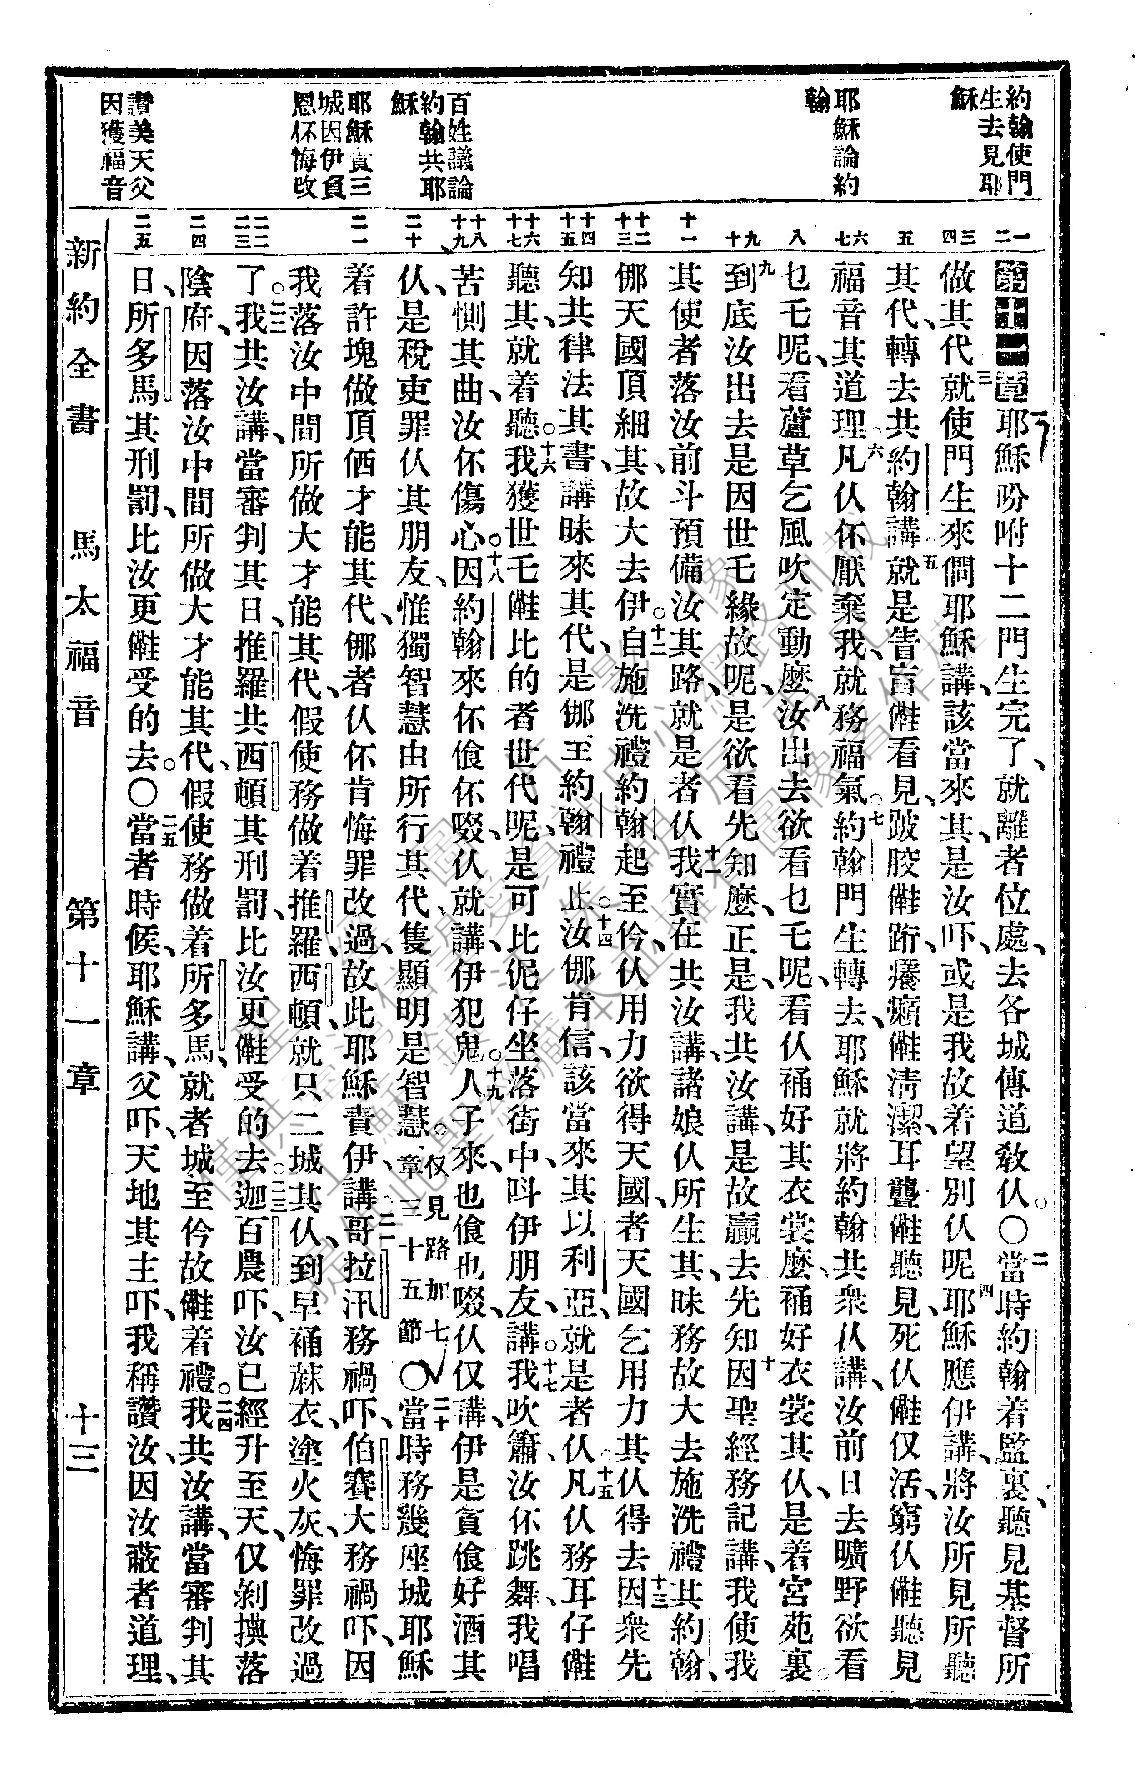 約翰使門
生去見耶
穌
耶穌論約
翰
百姓議論
約翰共耶
穌
耶穌責三
城因伊負
恩伓悔改
讚美天父
因獲福音
一 二
三 四
五
六 七
八
九 十
十一
十二 十三
十四 十五
十六 十七
十八 十九
二十
二一
二二 二三
二四
二五
耶穌吩咐十二門生完了、就離者位處、去各城傳道教仈。〇二當時約翰着監裏、聽見基督所
做其代、三就使門生來僴耶穌講、該當來其是汝吓、或是我故着望別仈呢、四耶穌應伊講、將汝所見所聽
其代、轉去共約翰講、五就是靑盲𠆧看見、跛骹𠆧跨、癢癩𠆧淸潔、耳聾𠆧聽見、死仈𠆧仅活、窮仈𠆧聽見
福音其道理、六凡仈伓厭棄我、就務福氣。七約翰門生轉去、耶穌就將約翰共衆仈講、汝前日去曠野欲看
乜乇呢、看蘆草乞風吹定動麽、八汝出去欲看乜乇呢、看仈䘄好其衣裳麽、䘄好衣裳其仈、是着宮苑裏。
九到底汝出去是因世乇緣故呢、是欲看先知麽、正是、我共汝講、是故贏去先知、十因聖經務記講、我使我
其使者落汝前斗預備汝其路、就是者仈、十一我實在共汝講、諸娘仈所生其、昧務故大去施洗禮其約翰、
㑚天國頂細其、故大去伊。十二自施洗禮約翰起、至伶仈用力欲得天國、者天國乞用力其仈得去、十三因衆先
知共律法其書、講昧來其代、是㑚至約翰禮止、十四汝㑚肯信、該當來其以利亞、就是者仈、十五凡仈務耳仔𠆧
聽其、就着聽。十六我獲世乇𠆧比的者世代呢、是可比伲仔坐落街中、叫伊朋友、講、十七我吹簫、汝伓跳舞、我唱
苦惻其曲、汝伓傷心。十八因約翰來、伓飡伓啜、仈就講伊犯鬼。十九人子來、也飡也啜、仈仅講伊是貪飡好酒其
仈、是稅吏罪仈其朋友、惟獨智慧由所行其代、隻顯明是智慧。仅見路加七章三十五節〇二十當時務幾座城、耶穌
着許塊做頂価才能其代、㑚者仈伓肯悔罪改過、故此耶穌責伊講、二一哥拉汛務禍吓、伯賽大務禍吓、因
我落汝中間所做大才能其代、假使務做着推羅西頓、就只二城其仈、到早䘄蔴衣、塗火灰、悔罪改過
了。二二我共汝講、當審判其日、推羅共西頓其刑罰、比汝更𠆧受的去。二三迦百農吓、汝已經升至天、仅剝㨆落
陰府、因落汝中間所做大才能其代、假使務做着所多馬、就者城至伶故𠆧着禮。二四我共汝講、當審判其
日、所多馬其刑罰、比汝更𠆧受的去。〇二五當者時候、耶穌講、父吓、天地其主吓、我稱讚汝、因汝蔽者道理、
新約全書 馬太福音 第十一章 十三